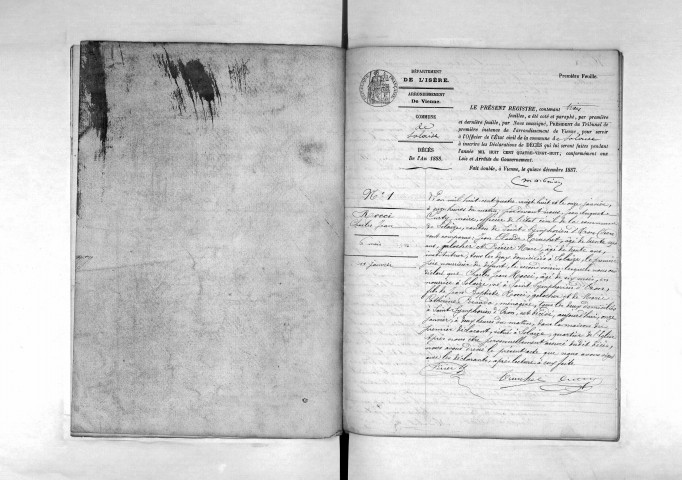 DÉPARTEMENT
DE L'ISÈRE.
ARRONDISSEMENT
De Vienne.
COMMUNE
de
Solaize
DÉCÈS
De l'An 1888.
Première Feuille
LE PRÉSENT REGISTRE, contenant trois
feuilles, a été coté et paraphé, par première
et dernière feuille, par Nous soussigné, PRÉSIDENT du Tribunal de
première instance de l'arrondissement de Vienne, pour servir
à l'Officier de l'État civil de la commune de Solaize
à inscrire les Déclarations de DÉCÈS qui lui seront faites pendant
l'année MIL HUIT CENT QUATRE-VINGT-HUIT, conformément aux
Lois et Arrêtés du Gouvernement.
Fait double, à Vienne, le quinze décembre 1887.
N° 1
Charles Jean
6 mois
11 janvier
L'an mil huit cent quatre vingt huit et le onze janvier,
à onze heures du matin, par devant nous, Jean
maire, officier de l'état civil de la commune
de Solaize, canton de Saint Symphorien d'Ozon,
sont comparus, Jean Claude âgé de trente
ans, galocher et âgé de trente ans,
instituteur, tous les deux domiciliés à Solaize, le premier
père nourricier du défunt, le second voisin, lesquels nous ont
déclaré que Charles Jean âgé de six mois, en
nourrice à Solaize, né à Saint Symphorien d'Ozon,
fils de Jean Baptiste galocher et de Marie
Catherine ménagère, tous les deux domiciliés
à Saint Symphorien d'Ozon, est décédé, aujourd'hui, onze
janvier, à heures du matin, dans la maison du
premier déclarant, située à Solaize, quartier de l'église
Après nous être personnellement assuré dudit décès,
nous avons dressé le présent acte que nous avons signé
avec les déclarants, après lecture à eux faite